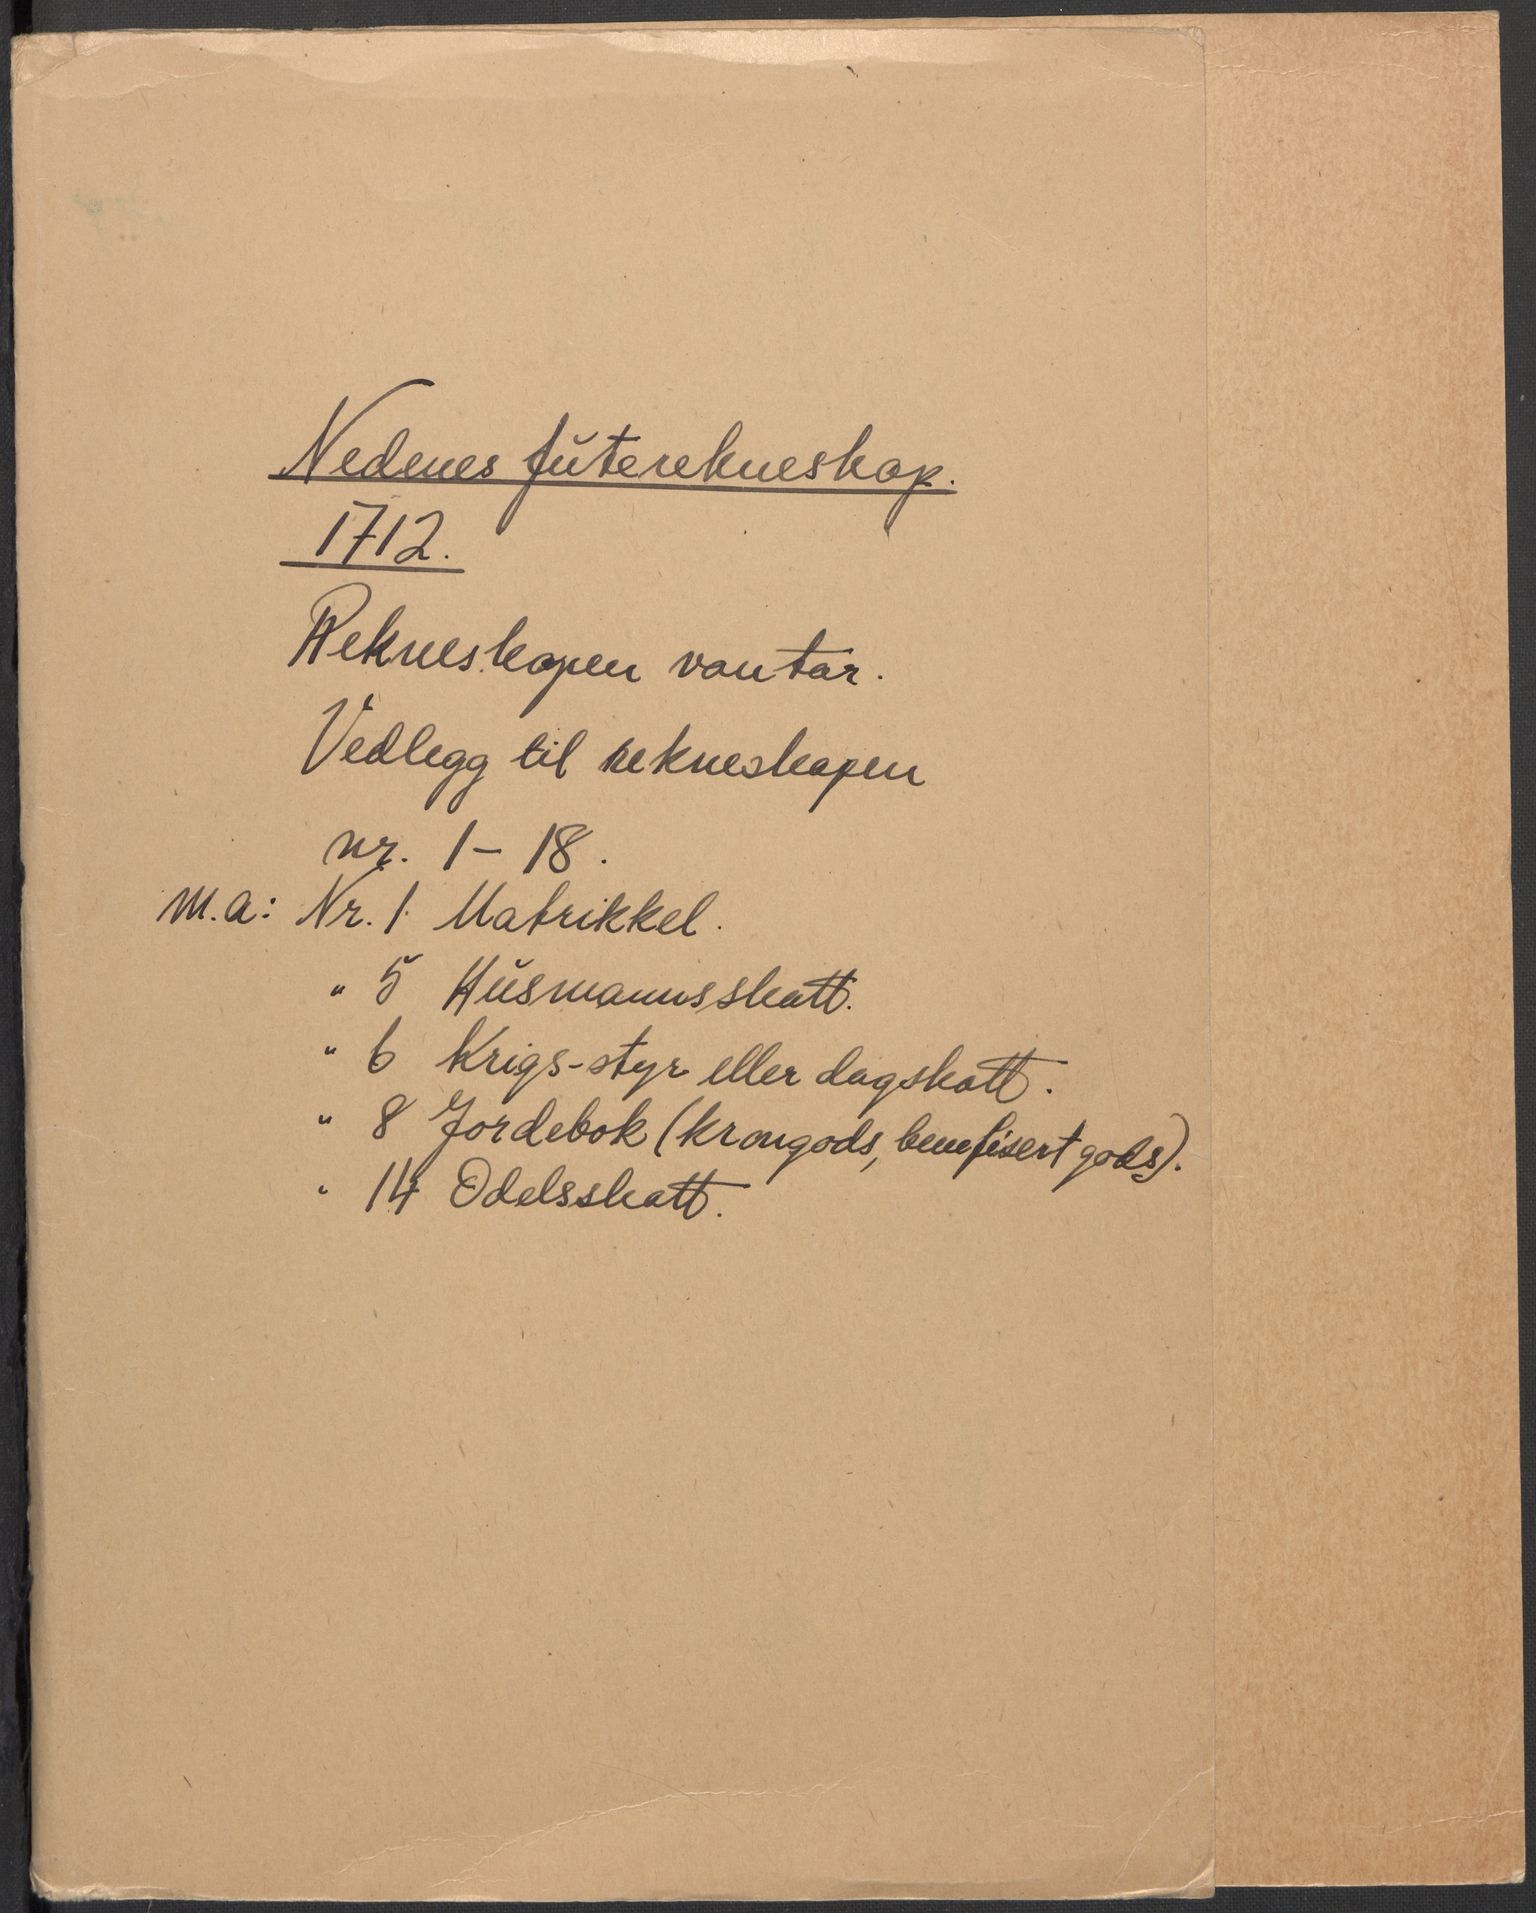 Nedenes futerekneskap.
1712.
Rekneskapen vantar.
Vedlegg til rekneskapen
nr. 1-18.
m.a: Nr. 1 Matrikkel.
" 5 Husmannsskatt.
" 6 Krigs-styr eller dagskatt.
" 8 Jordebok (krongods, benefisert gods).
" 14 Odelsskatt.